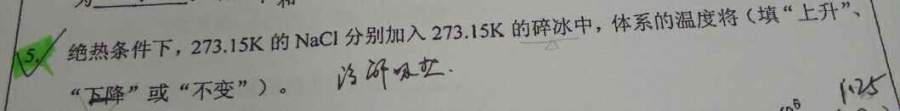 5. 绝热条件下，273.15K 的 NaCl 分别加入 273.15K 的碎冰中，体系的温度将（填“上升”、
“下降”或“不变”）。
1.25